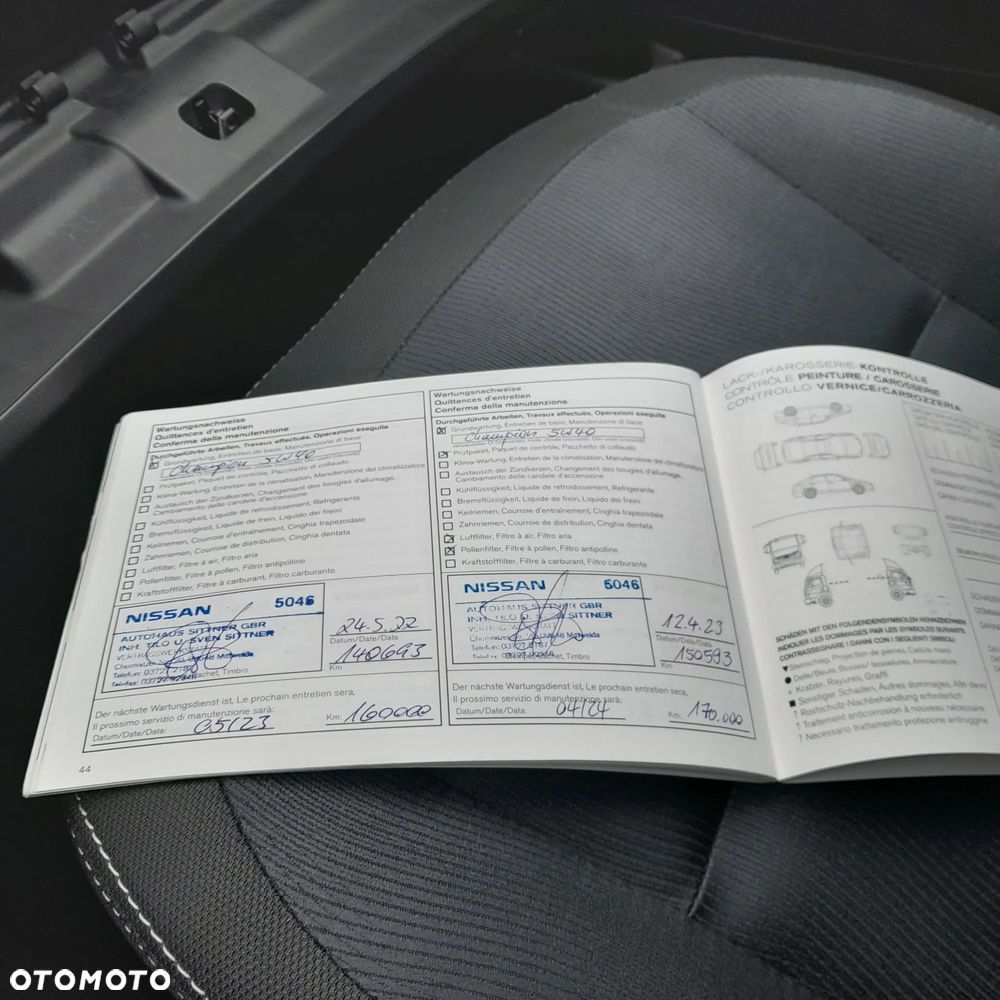 Wartungsnachweise
Quittances d'entretien
Conferma della manutenzione
Durchgeführte Arbeiten, Travaux effectués, Operazioni eseguite
Grundwartung, Entretien de base, Manutenzione di base
Champion 5W40
Prüfpaket, Paquet de contrôle, Pacchetto di collaudo
Klima-Wartung, Entretien de la climatisation, Manutenzione del climatizzatore
Austausch der Zündkerzen, Changement des bougies d'allumage,
Cambiamento delle candele d'accensione
Kühlflüssigkeit, Liquide de refroidissement, Refrigerante
Bremsflüssigkeit, Liquide de frein, Liquido dei freini
Keilriemen, Courroie d'entraînement, Cinghia trapezoidale
Zahnriemen, Courroie de distribution, Cinghia dentata
Luftfilter, Filtre à air, Filtro aria
Pollenfilter, Filtre à pollen, Filtro antipolline
Kraftstofffilter, Filtre à carburant, Filtro carburante
NISSAN 5046
AUTOHAUS SITTNER GBR
INH. TILO U. SVEN SITTNER
VERTRAGSWERKSTATT
24.5.22
Datum/Date/Data
140693
Km
Der nächste Wartungsdienst ist, Le prochain entretien sera,
Il prossimo servizio di manutenzione sarà:
Datum/Date/Data: 05/23 Km: 160000
44
Wartungsnachweise
Quittances d'entretien
Conferma della manutenzione
Durchgeführte Arbeiten, Travaux effectués, Operazioni eseguite
Grundwartung, Entretien de base, Manutenzione di base
Champion 5W40
Prüfpaket, Paquet de contrôle, Pacchetto di collaudo
Klima-Wartung, Entretien de la climatisation, Manutenzione del climatizzatore
Austausch der Zündkerzen, Changement des bougies d'allumage,
Cambiamento delle candele d'accensione
Kühlflüssigkeit, Liquide de refroidissement, Refrigerante
Bremsflüssigkeit, Liquide de frein, Liquido dei freini
Keilriemen, Courroie d'entraînement, Cinghia trapezoidale
Zahnriemen, Courroie de distribution, Cinghia dentata
Luftfilter, Filtre à air, Filtro aria
Pollenfilter, Filtre à pollen, Filtro antipolline
Kraftstofffilter, Filtre à carburant, Filtro carburante
NISSAN 5046
AUTOHAUS SITTNER GBR
12.4.23
Datum/Date/Data
150593
Km
Der nächste Wartungsdienst ist, Le prochain entretien sera,
Il prossimo servizio di manutenzione sarà:
Datum/Date/Data: 04/24 Km: 170.000
LACK-/KAROSSERIE-KONTROLLE
CONTRÔLE PEINTURE / CAROSSERIE
CONTROLLO VERNICE/CARROZZERIA
SCHÄDEN MIT DEN FOLGENDEN SYMBOLEN KENNZEICHNEN
INDIQUER LES DOMMAGES PAR LES SYMBOLES SUIVANTS
CONTRASSEGNARE I DANNI CON I SEGUENTI SIMBOLI
Steinschlag, Projection de pierres, Caduta massi
Delle/Beule, Bosses/ bossatures, Ammaccature
+ Kratzer, Rayures, Graffi
Sonstiger Schaden, Autres dommages, Altri danni
↑ Rostschutz-Nachbehandlung erforderlich
↑ Traitement anticorrosion à nouveau nécessaire
↑ Necessario trattamento protezione antiruggine
OTOMOTO